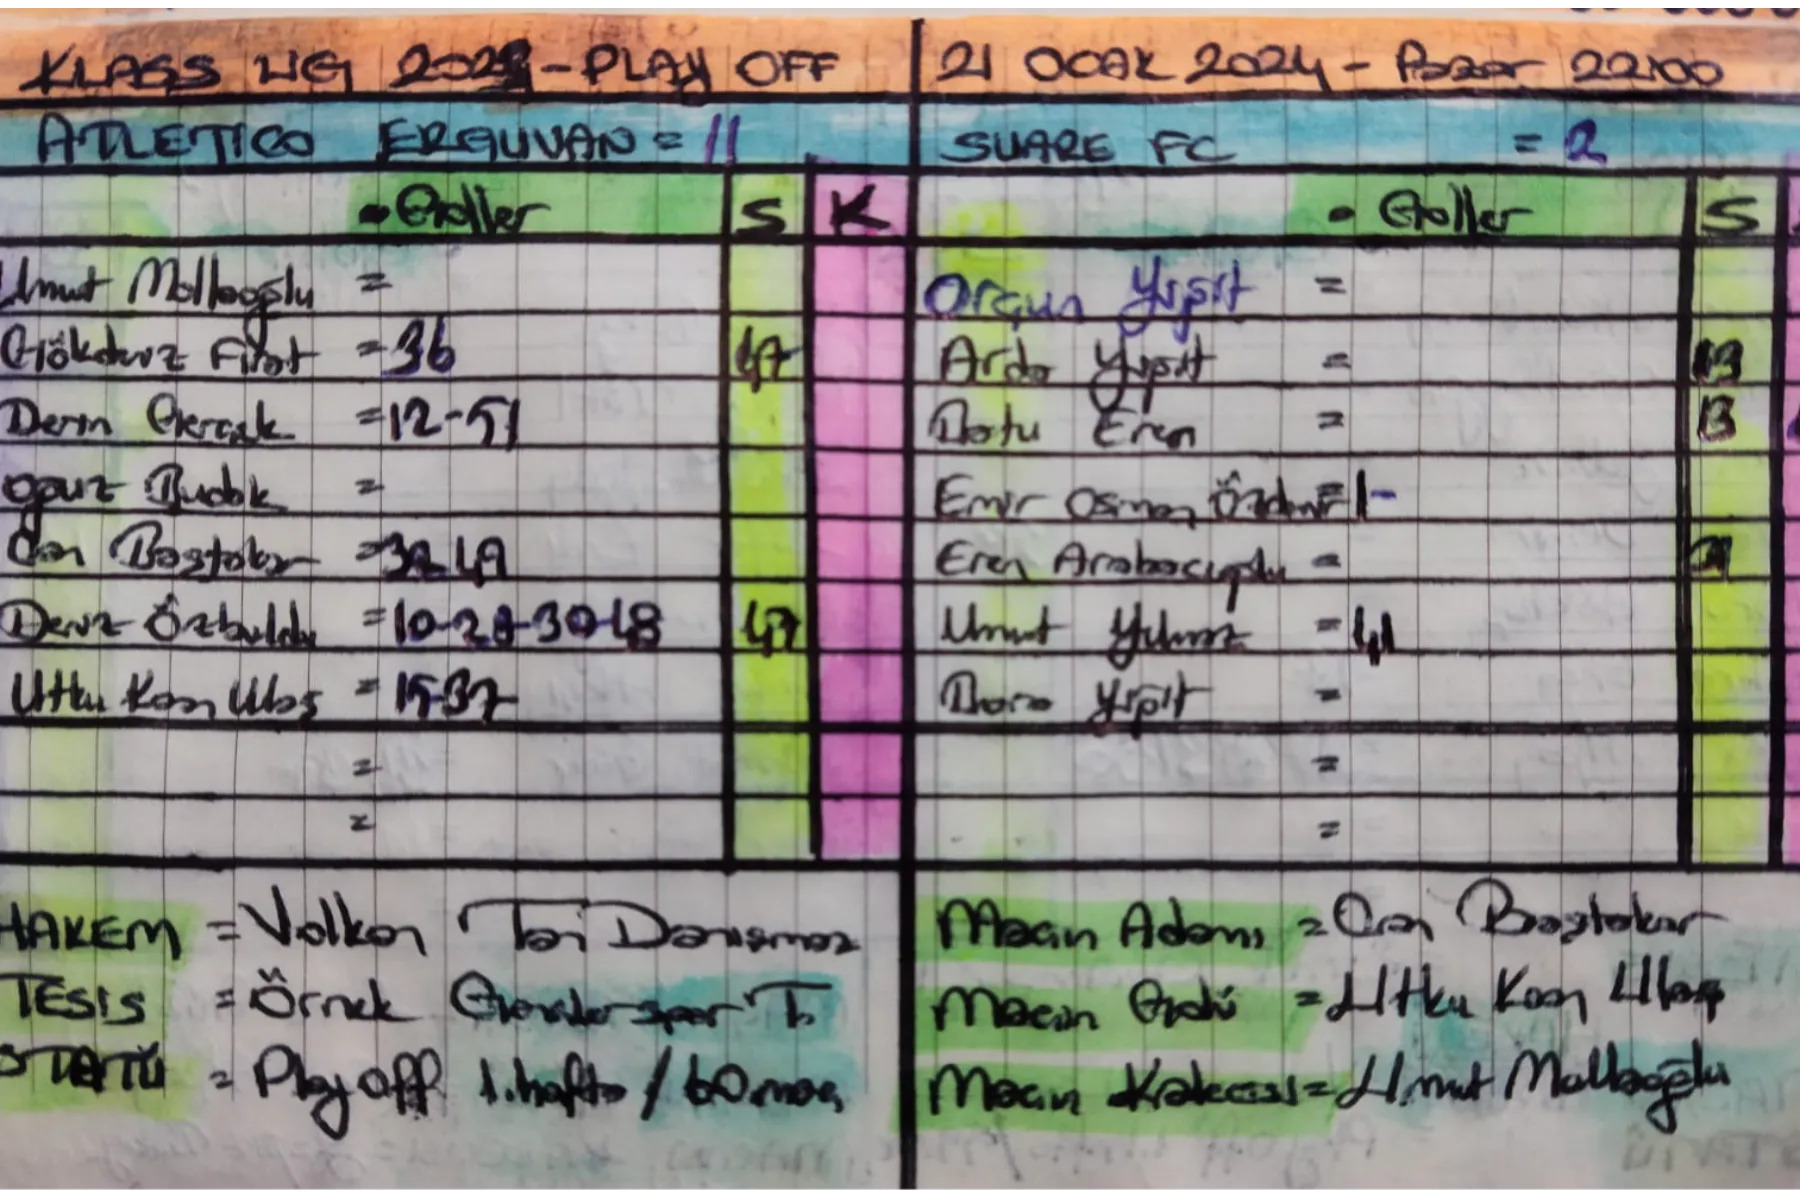 KLASS LİG 2023-PLAY OFF
21 OCAK 2024 - Pazar 22:00
ATLETICO ERGUVAN = 11
SUARE FC = 2
• Goller S K
• Goller S
Umut Mollaoğlu =
Orçun Yiğit =
Gökdeniz Fırat = 36 47
Arda Yiğit = 13
Derin Gerçek = 12-51
Batu Eren = 13
Oğuz Budak =
Emir Osman Özdemir = 1-
Can Baştakar = 32-49
Eren Arabacıoğlu =
Deniz Özbuldu = 10-28-30-48 47
Umut Yılmaz = 41
Utku Kaan Ulaş = 15-37
Bora Yiğit =
=
=
=
=
HAKEM = Volkan Tai Danışmaz
Maçın Adamı = Can Baştakar
TESİS = Örnek Gençlerspor T.
Maçın Golü = Utku Kaan Ulaş
STATÜ = Play off 1.hafta / 60.maç
Maçın Kalecisi = Umut Mollaoğlu